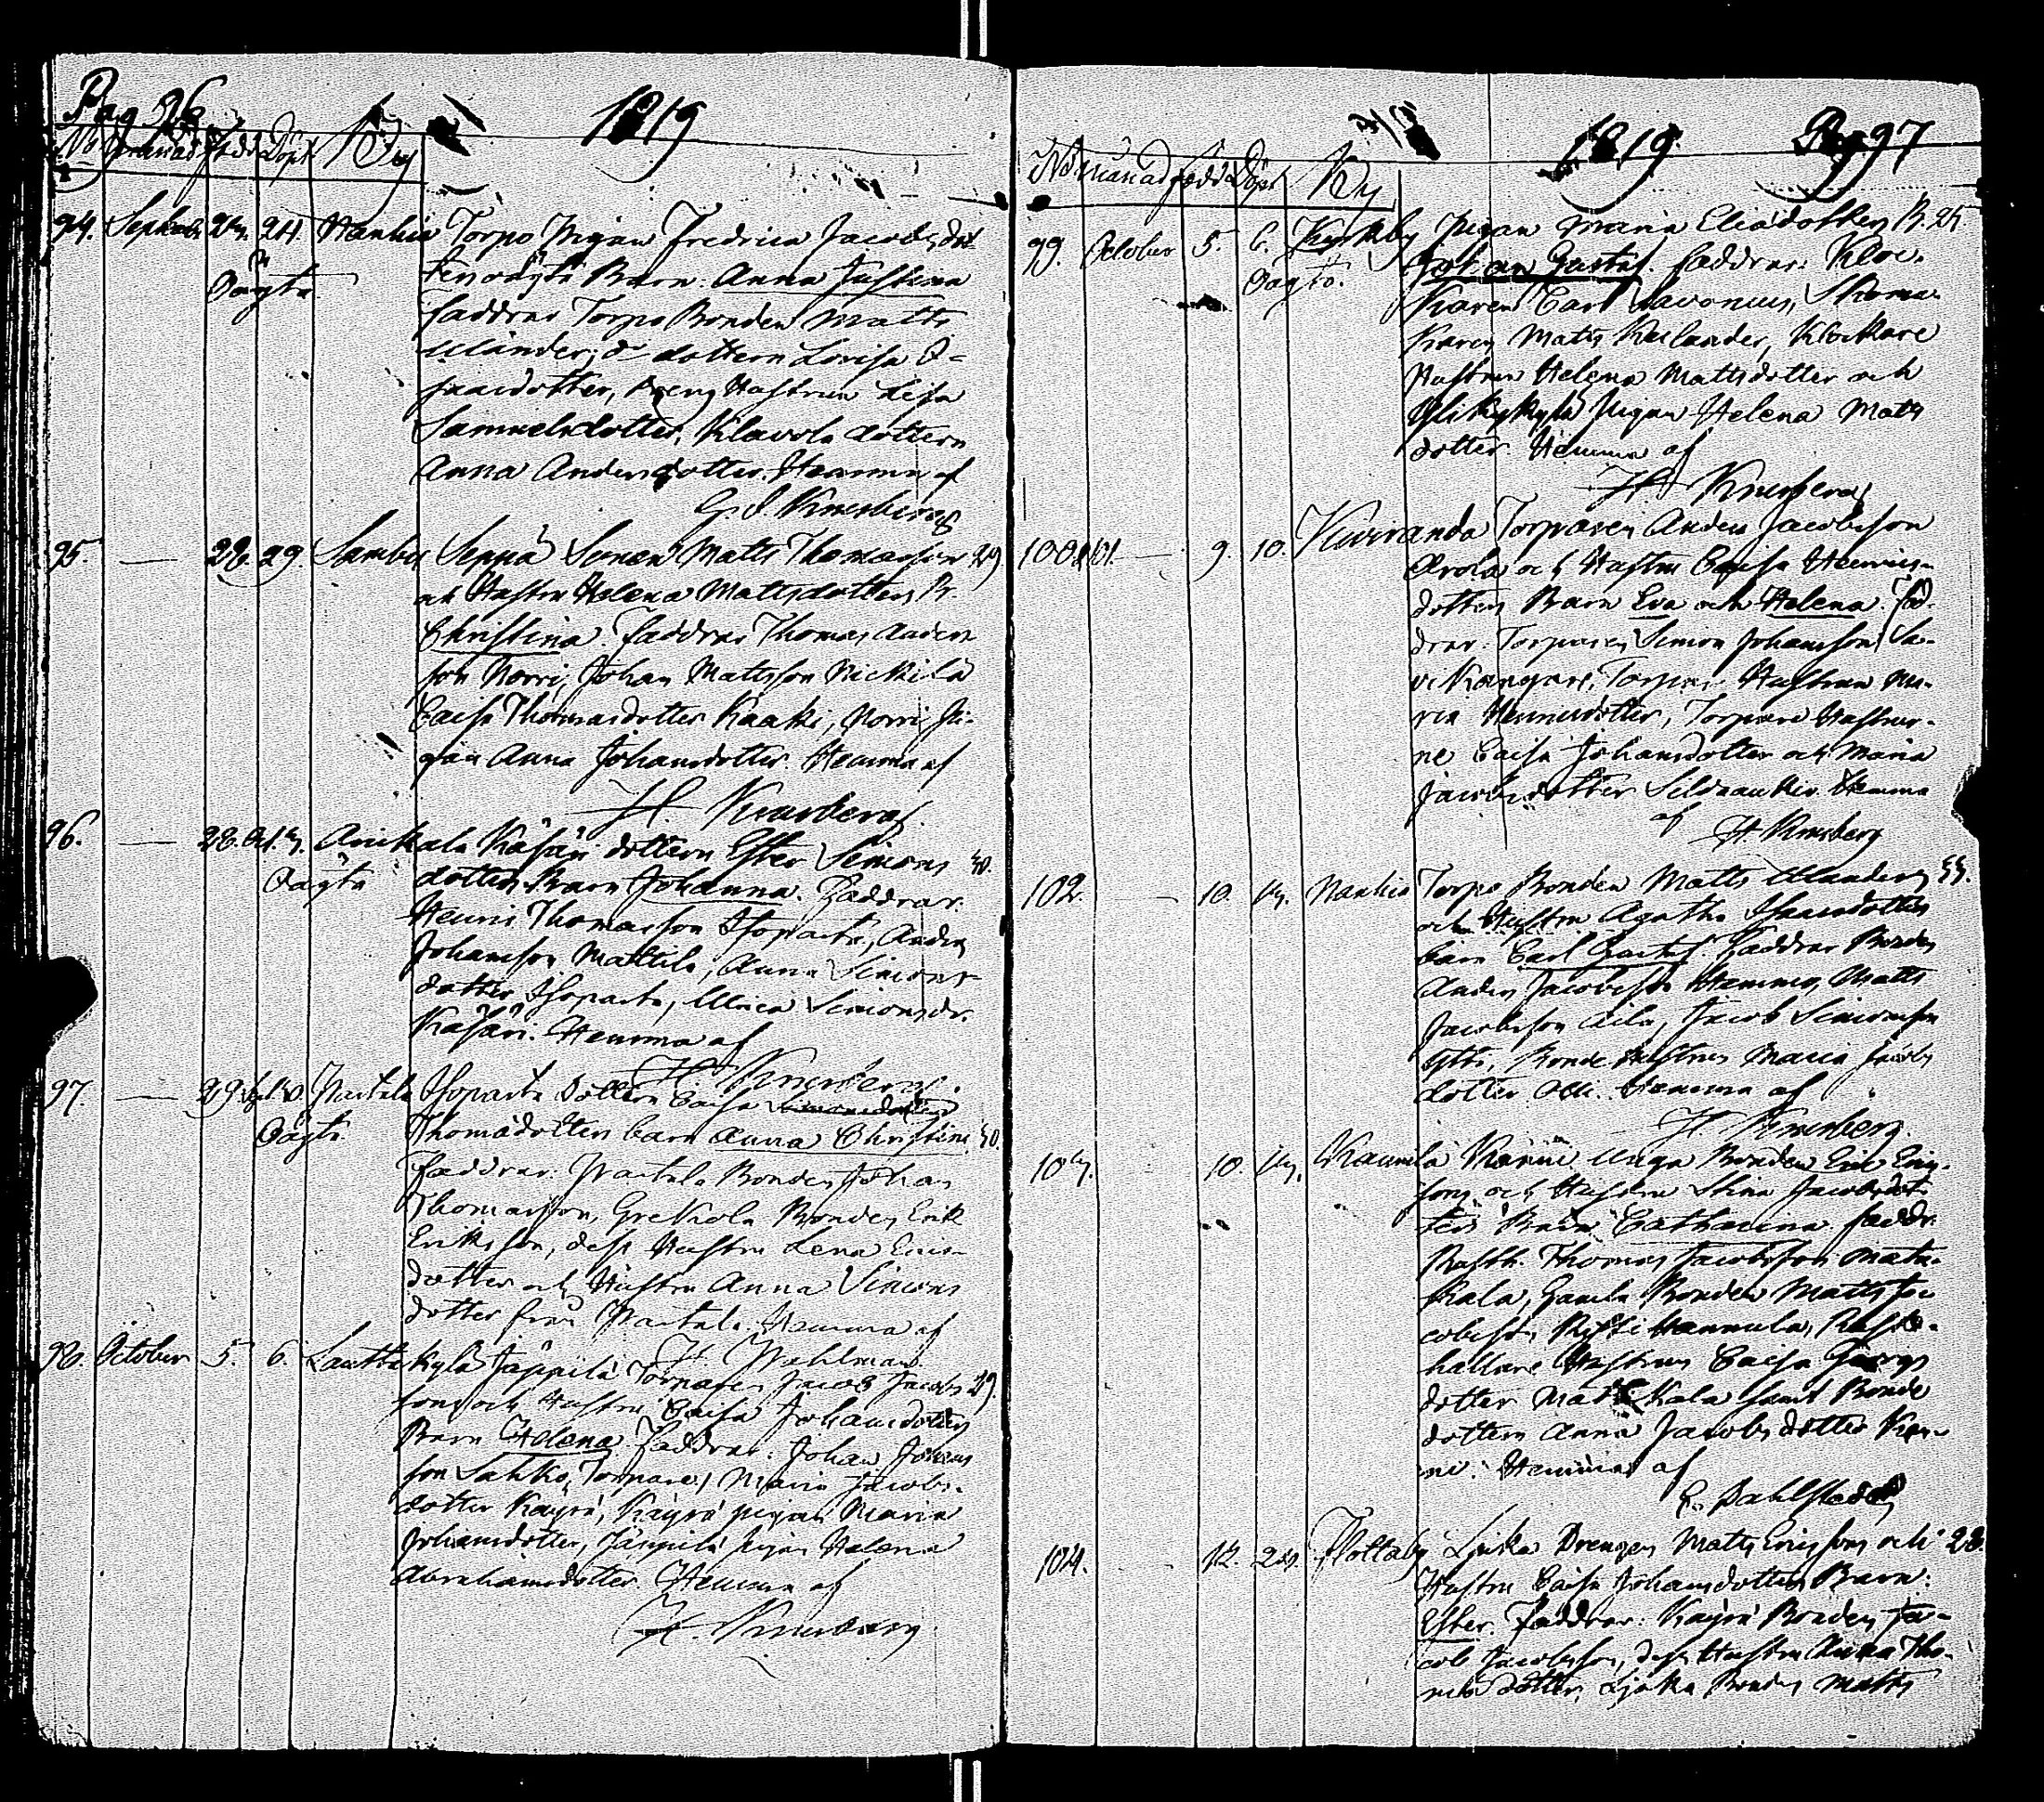 Pag 96 1819
No Månad Född Döpt By
94. Septemb. 23. 24. Nankia Torpo Pigan Fredrica Jacobsdot-
Oägta ters oägta Barn Anna Justina
Faddrar Torpo Bonden Matts
dottern Lovisa I-
saacsdotter, Hustrun Lisa
Samuelsdotter, Klavola dottern
Anna Andersdotter. Hemma af
G. J. Knorberg
95. — 28. 29. Sambu Seppä Sonen Matts Thomasson 29
och Hustru Helena Mattsdotters B.
Christina. Faddrar Thomas Anders
son Norri, Johan Mattsson Nickilä
Caisa Thomasdotter Kaaki, Norri Pi-
gan Anna Johansdotter. Hemma af
H. Knorberg
96. — 28. Oct. 3. Arikala Käsäri dottern Ester Simons 30.
Oägta dotters Barn Johanna. Faddrar.
Henric Thomasson Isoparta, Anders
Johansson Mattila, Anna Simons-
dotter Isoparta, Ulrica Simonsdr.
Käsäri. Hemma af
H. Knorberg
97. — 29. 30. Partala Isoparta dottern Caisa Simonsdotter
Oägta. Thomädotters barn Anna Christina 30.
Faddrar: Partala Bonden Johan
Thomasson, Grekola Bonden Erik
Eriksson, dess Hustru Lena Erics-
dotter och Hustru Anna Simons
dotter från Partala. Hemma af
H. Wahlman
98. October 5. 6. Lauttakylä Jäppilä Torparen Jacob Jacobs 29.
sons och Hustru Caisa Johansdotters
Barn Helena. Faddrar: Johan Johans
son Sahko, Torpare, Maria Jacobs-
dotter Käyrä, Käyrä pigan Maria
Johansdotter, Jäppilä pigan Helena
Abrahamsdotter. Hemma af
H. Knorberg
1819. Pag 97
No Månad Född Döpt By
99. October 5. 6. Kyrkby Pigan Maria Eliædotters B. 25.
Oägta. Johan Gustaf. Faddrar: Kloc-
karen Carl Savonius, Skoma-
karen Matts Kulander, Klockare
Hustrun Helena Mattsdotter och
pigan Helena Matts
dotter. Hemma af
H. Knorberg
100 & 101. — 9. 10. Kivvranda Torparen Anders Jacobsson
Arola och Hustru Caisa Henrics-
dotters Barn Eva och Helena. Fad-
drar: Torparen Simon Johansson Sa-
vikangare, Torpare Hustrun Ma-
ria Henricsdotter, Torpare Hustrur-
ne Caisa Johansdotter och Maria
Jacobsdotter Seldraankir. Hemma
af H. Knorberg
102. — 10. 13. Nankia Torpo Bonden Matts 33.
och Hustru Agatha Isaacsdotters
barn Carl Gustaf. Faddrar Bonden
Anders Jacobsson Hemming, Matts
Jacobsson Aila, Jacob Simonsson
Ylli, Bonde Hustrun Maria Jacobs
dotter Olli. Hemma af
H. Knorberg
103. 10. 13. Kaumla Känni Unga Bonden Eric Eric-
sons och Hustru Stina Jacobsdot-
ters Barn Catharina. Faddr.
Rusth. Thomas Jacobsson Mata-
kala, Gamla Bonden Matts Ja-
cobsson, Risti Hannula, Rust-
hållare Hustrun Caisa Georgs
dotter Matakala samt Bonde
dottern Anna Jacobsdotter Kän-
ni. Hemma af
E. Dahlstedt
104. 12. 24. Flottaby Ljuka Drengen Matts Ericssons och 28.
Hustru Caisa Johansdotters Barn:
Ester. Faddrar: Käyrä Bonden Ja-
cob Jacobsson, dess Hustru Anna Tho-
mædotter, Ljuka Bonden Matts